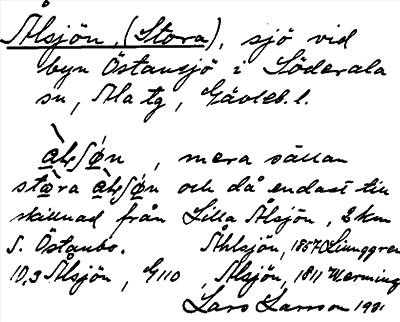 Ålsjön, (Stora), sjö vid
byn Östansjö i Söderala
sn, Ala tg, Gävleb. l.
mera sällan
och då endast till
skillnad från Lilla Ålsjön, 2 km
S. Östanbo. Åhlsjön, 1857 Ljunggren
10,3 Ålsjön, G110, Ålsjön, 1811 Werming
Lars Larsson 1931